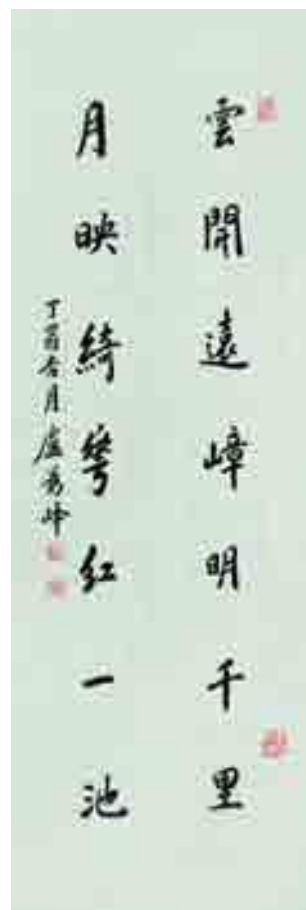 雲開遠嶂明千里
月映綺窗紅一池
丁酉春月盧秀峰